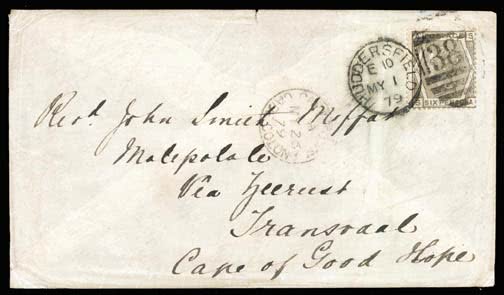 HUDDERSFIELD
E 10
MY 1
79
138
SIX PENCE
Revd. John Smith Moffat
Molepolole
Via Zeerust
Transvaal
Cape of Good Hope
COLONY
79